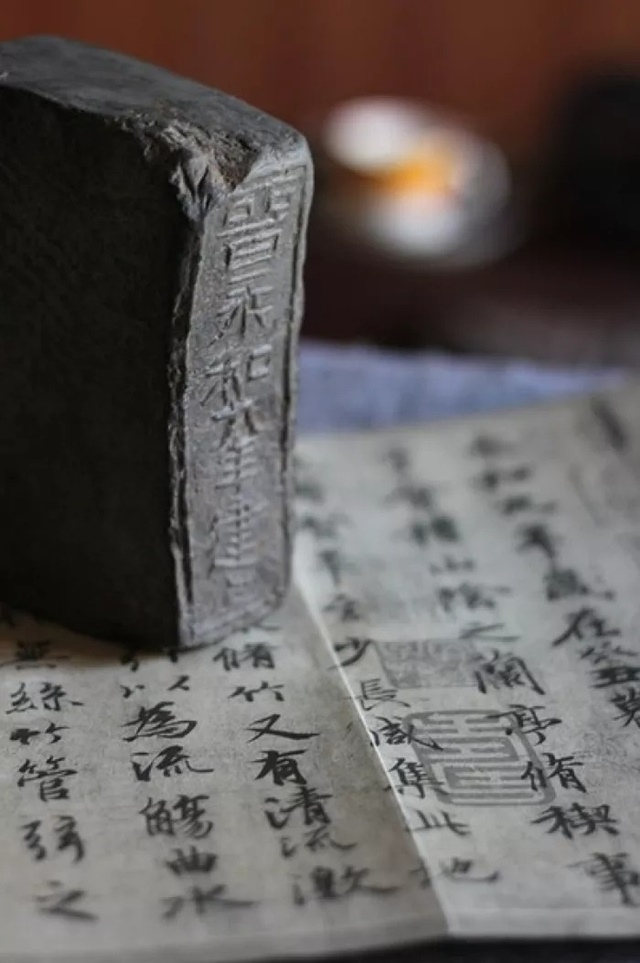 晉永和年
永和九年歲在癸丑暮
會稽山陰之蘭亭脩禊事
至少長咸集此地
脩竹又有清流激
以為流觴曲水
無絲竹管弦之